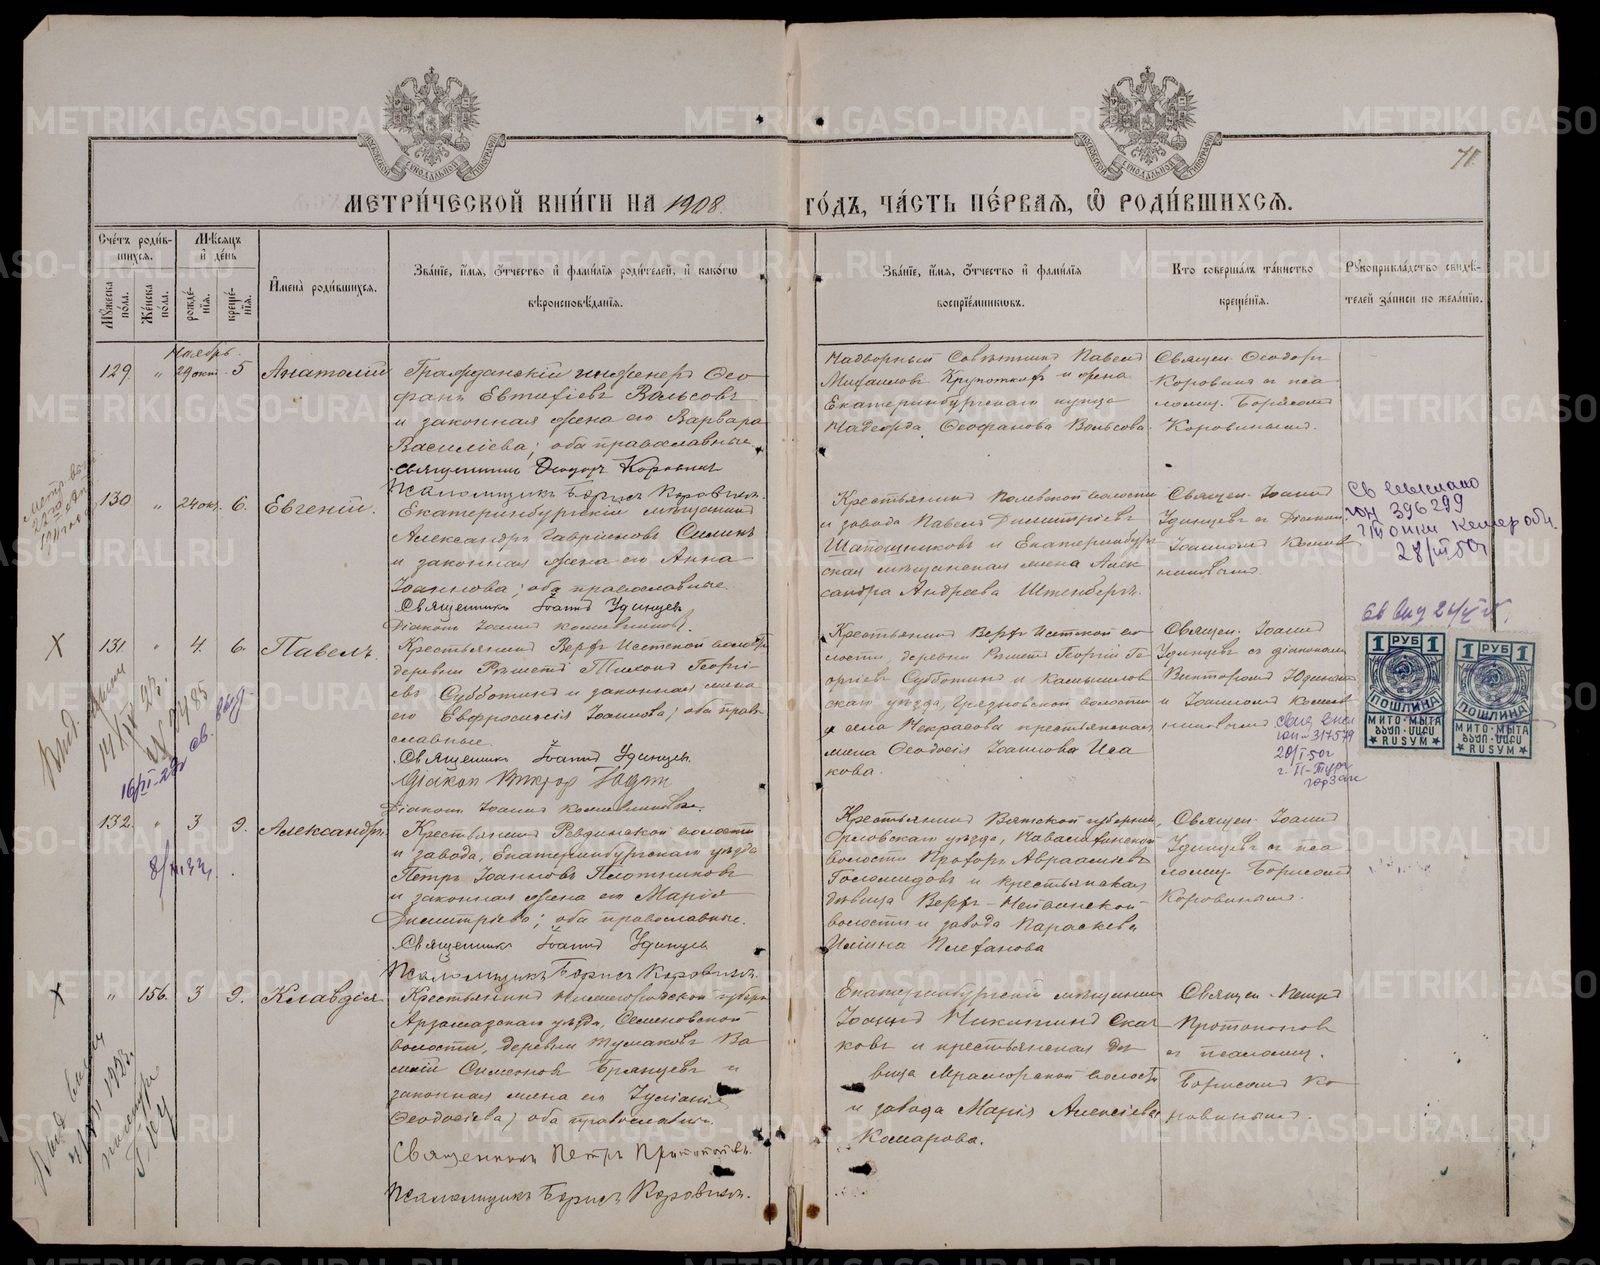 МЕТРИ́ЧЕСКОЙ КНИ́ГИ НА 1908 ГО́ДЪ, ЧА́СТЬ ПЕ́РВАЯ, Ѽ РОДИ́ВШИХСЯ.
71.
Сче́тъ роди́вшихся.
Мꙋ́жеска пола.
Же́нска пола.
Мѣ́сяцъ и҆ де́нь
рожде́нїя.
креще́нїя.
И҆мена̀ роди́вшихся.
Зва́нїе, и҆́мя, ѻ҆́тчество и҆ фами́лїя роди́телей, и҆ како́гѡ
вѣроисповѣ́данїя.
Зва́нїе, и҆́мя, ѻ҆́тчество и҆ фами́лїя
воспрїе́мникѡвъ.
Кто соверша́лъ та́инство
креще́нїя.
Рꙋкоприкла́дство свидѣ́-
телей за́писи по жела́нїю.
Ноябрь
129. " 29 окт. 5 Анатолий
Гражданскій инженеръ Ѳео
фанъ Евтихіевъ Вольсовъ
и законная жена его Варвара
Василіева; оба православные.
Священникъ Ѳеодоръ Коровинъ
Псаломщикъ Борисъ Коровинъ.
Надворный Совѣтникъ Павелъ
Михаиловъ Крупоткинъ и жена
Екатеринбургскаго купца
Надежда Ѳеофанова Вольсова
Священ. Ѳеодоръ
Коровинъ съ пса
ломщ. Борисомъ
Коровинымъ.
130. " 24 окт. 6. Евгеній.
Екатеринбургскій мѣщанинъ
Александръ Гавріиловъ Силинъ
и законная жена его Анна
Іоаннова; оба православные
Священникъ Іоаннъ Удинцевъ
Діаконъ Іоаннъ
Крестьянинъ Полевской волости
и завода Павелъ Димитріевъ
Шапошниковъ и Екатеринбург
ская мѣщанская жена Алек
сандра Андреева Штенбергъ.
Священ. Іоаннъ
Удинцевъ съ Діакон.
Іоанномъ
юн 396299
28/III 50г
131. " 4. 6. Павелъ.
Крестьянинъ Верхъ-Исетской волости
деревни Рѣшетъ Тихонъ Георгі
евъ Субботинъ и законная жена
его Евфросинія Іоаннова; оба право
славные.
Священникъ Іоаннъ Удинцевъ
Діаконъ Викторъ
Діаконъ Іоаннъ
Крестьянинъ Верхъ-Исетской во
лости, деревни Рѣшетъ Георгій Ге
оргіевъ Субботинъ и Камышлов
скаго уѣзда, волости
и села Некрасова крестьянская
жена Ѳеодосія Іоаннова Иса
кова.
Священ. Іоаннъ
Удинцевъ съ діаконами
Викторомъ
и Іоанномъ
юн-317579
20/I-50г
1 РУБ 1
ПОШЛИНА
МИТО·МЫТА
ԲԱԺ
★RUSYM★
1 РУБ 1
ПОШЛИНА
МИТО·МЫТА
ԲԱԺ
★RUSYM★
132. " 3 9. Александръ.
Крестьянинъ Ревдинской волости
и завода, Екатеринбургскаго уѣзда
Петръ Іоанновъ Плотниковъ
и законная жена его Марія
Димитріева; оба православные.
Священникъ Іоаннъ Удинцевъ
Псаломщикъ Борисъ Коровинъ.
Крестьянинъ Вятской губерніи,
Орловскаго уѣзда,
волости Прохоръ Авраамьевъ
и крестьянская
дѣвица Верхъ-Нейвинской
волости и завода Параскева
Ильина Плеханова
Священ. Іоаннъ
Удинцевъ съ пса
ломщ. Борисомъ
Коровинымъ.
" 156. 3 9. Клавдія
Крестьянинъ Нижегородской губерн.
Арзамазскаго уѣзда, Семеновской
волости, деревни Тумаковъ Ва
силій Симеоновъ Брянцевъ и
законная жена его Іуліанія
Ѳеодосіева; оба православн.
Священникъ Петръ Протопоповъ.
Псаломщикъ Борисъ Коровинъ.
Екатеринбургскій мѣщанинъ
Іоаннъ Никитинъ Ска
ковъ и крестьянская дѣ
вица Мраморской волости
и завода Марія Алексіева
Комарова.
Священ. Петръ
Протопоповъ
съ псаломщ.
Борисомъ Ко
ровинымъ.
METRIKI.GASO-URAL.RU